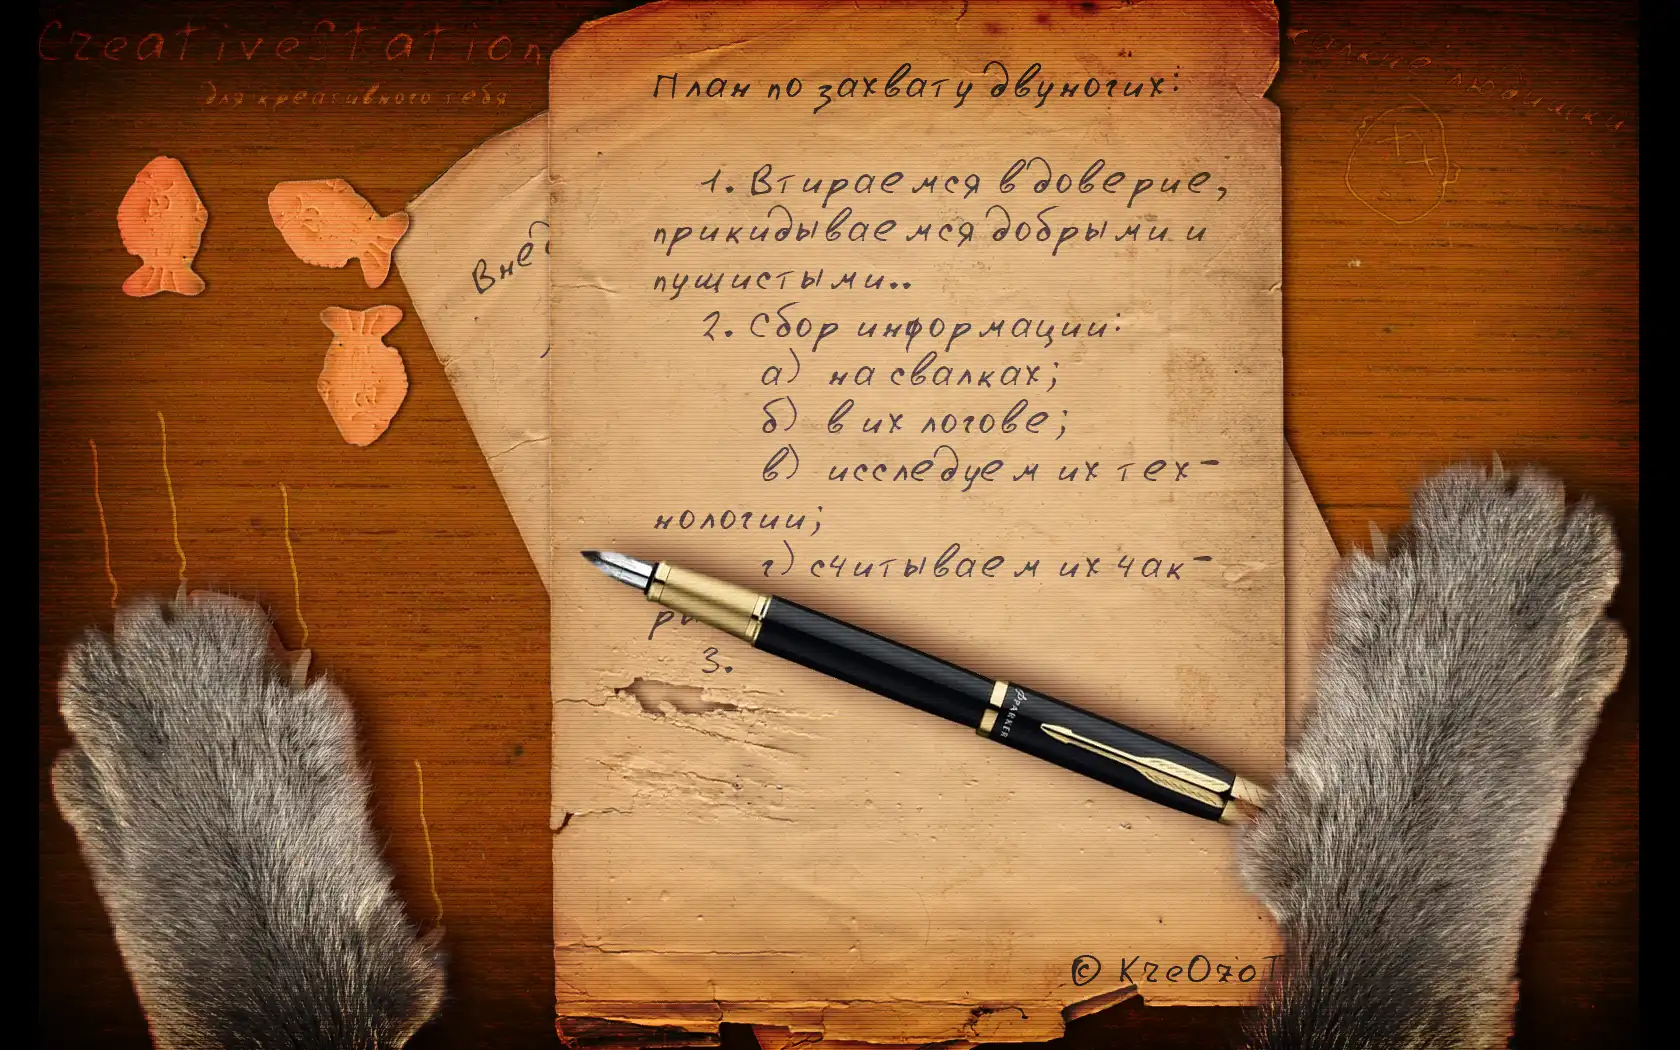 CreativeStation
для креативного тебя
План по захвату двуногих:
1. Втираемся в доверие,
прикидываемся добрыми и
пушистыми..
2. Сбор информации:
а) на свалках;
б) в их логове;
в) исследуем их тех-
нологии;
г) считываем их чак-
ры
3.
Внед
PARKER
© KreOzoT
людишки